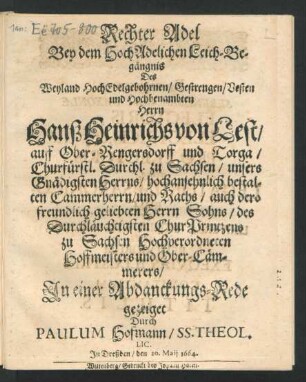 Rechter Adel
Bey dem HochAdelichen Leich-Be-
gängnis
Des
Weyland HochEdelgebohrnen/ Gestrengen/ Vesten
und Hochbenambten
Herrn
Hanß Heinrichs von Lest/
auff Ober-Rengersdorff und Torga/
Churfürstl. Durchl. zu Sachsen/ unsers
Gnädigsten Herrns/ hochansehnlich bestal-
ten Cammerherrn/ und Raths/ auch dero
freundlich geliebten Herrn Sohns/ des
Durchläuchtigsten ChurPrinzens
zu Sachsen Hochverordneten
Hoffmeisters und Ober-Cäm-
merers/
In einer Abdanckungs-Rede
gezeiget
Durch
PAULUM Hofmann/ SS. THEOL.
LIC.
In Dreßden/ den 10. Maij 1664.
Wittenberg/ Gedruckt bey